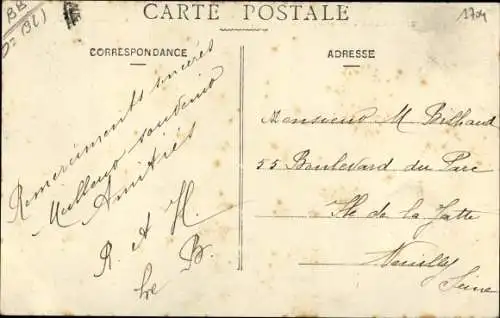 CARTE POSTALE
CORRESPONDANCE
Remerciments sincères
Meilleurs souvenirs
Amitiés
R. A H.
B.
ADRESSE
Monsieur M Bilhaud
55 Boulevard du Parc
Ile de la Jatte
Neuilly
Seine